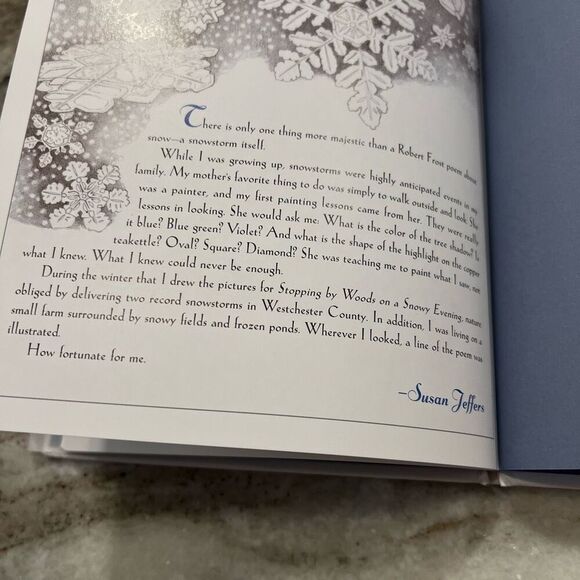 There is only one thing more majestic than a Robert Frost poem about
snow—a snowstorm itself.
While I was growing up, snowstorms were highly anticipated events in my
family. My mother's favorite thing to do was simply to walk outside and look. She
was a painter, and my first painting lessons came from her. They were really
lessons in looking. She would ask me: What is the color of the tree shadow? Is
it blue? Blue green? Violet? And what is the shape of the highlight on the copper
teakettle? Oval? Square? Diamond? She was teaching me to paint what I saw, not
what I knew. What I knew could never be enough.
During the winter that I drew the pictures for Stopping by Woods on a Snowy Evening, nature
obliged by delivering two record snowstorms in Westchester County. In addition, I was living on a
small farm surrounded by snowy fields and frozen ponds. Wherever I looked, a line of the poem was
illustrated.
How fortunate for me.
–Susan Jeffers